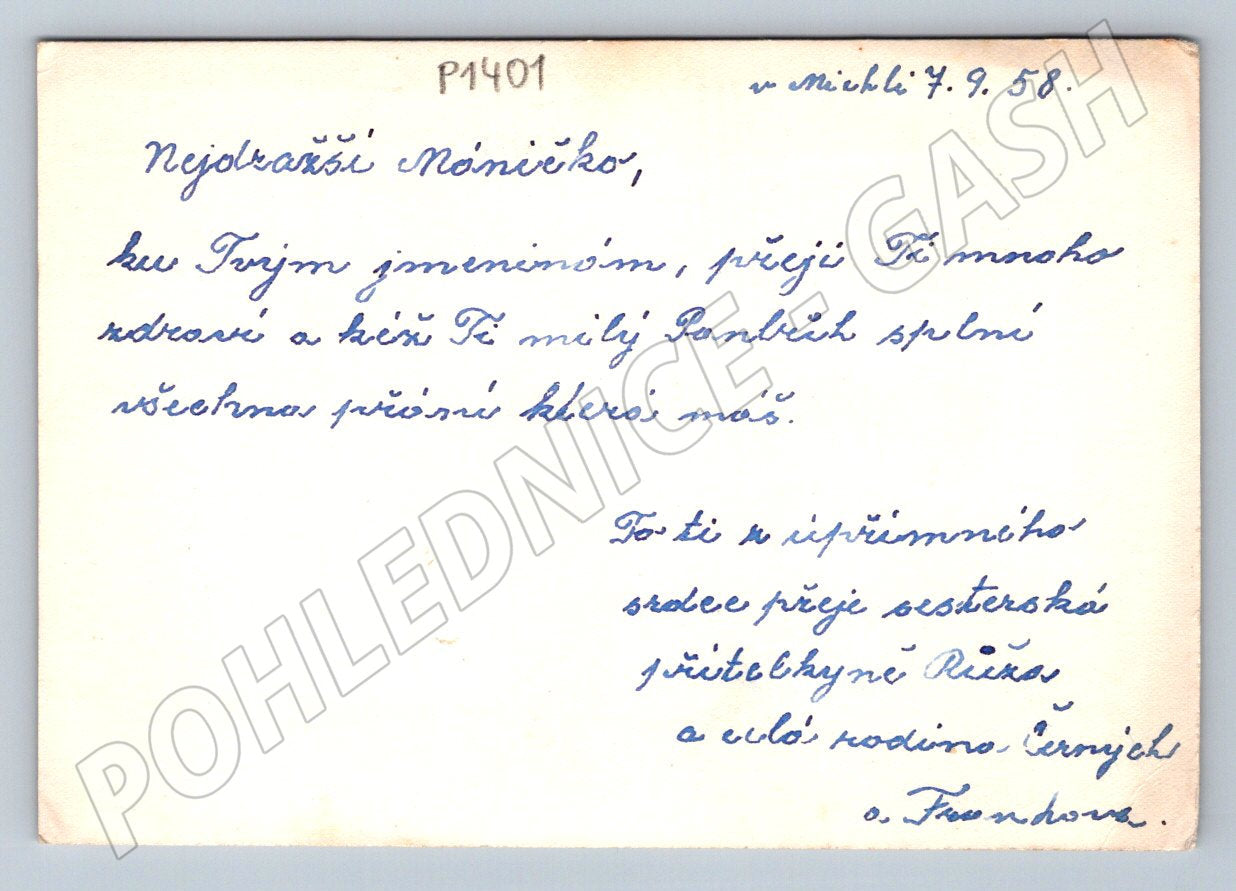 P1401
v Michli 7. 9. 58.
Nejdražší Máničko,
ku Tvým jmeninám, přeji Ti mnoho
zdraví a kéž Ti milý Pánbůh splní
všechna přání která máš.
To ti z úpřímného
srdce přeje sesterská
přítelkyně Růža
a celá rodina Černých
a
POHLEDNICE - GASH